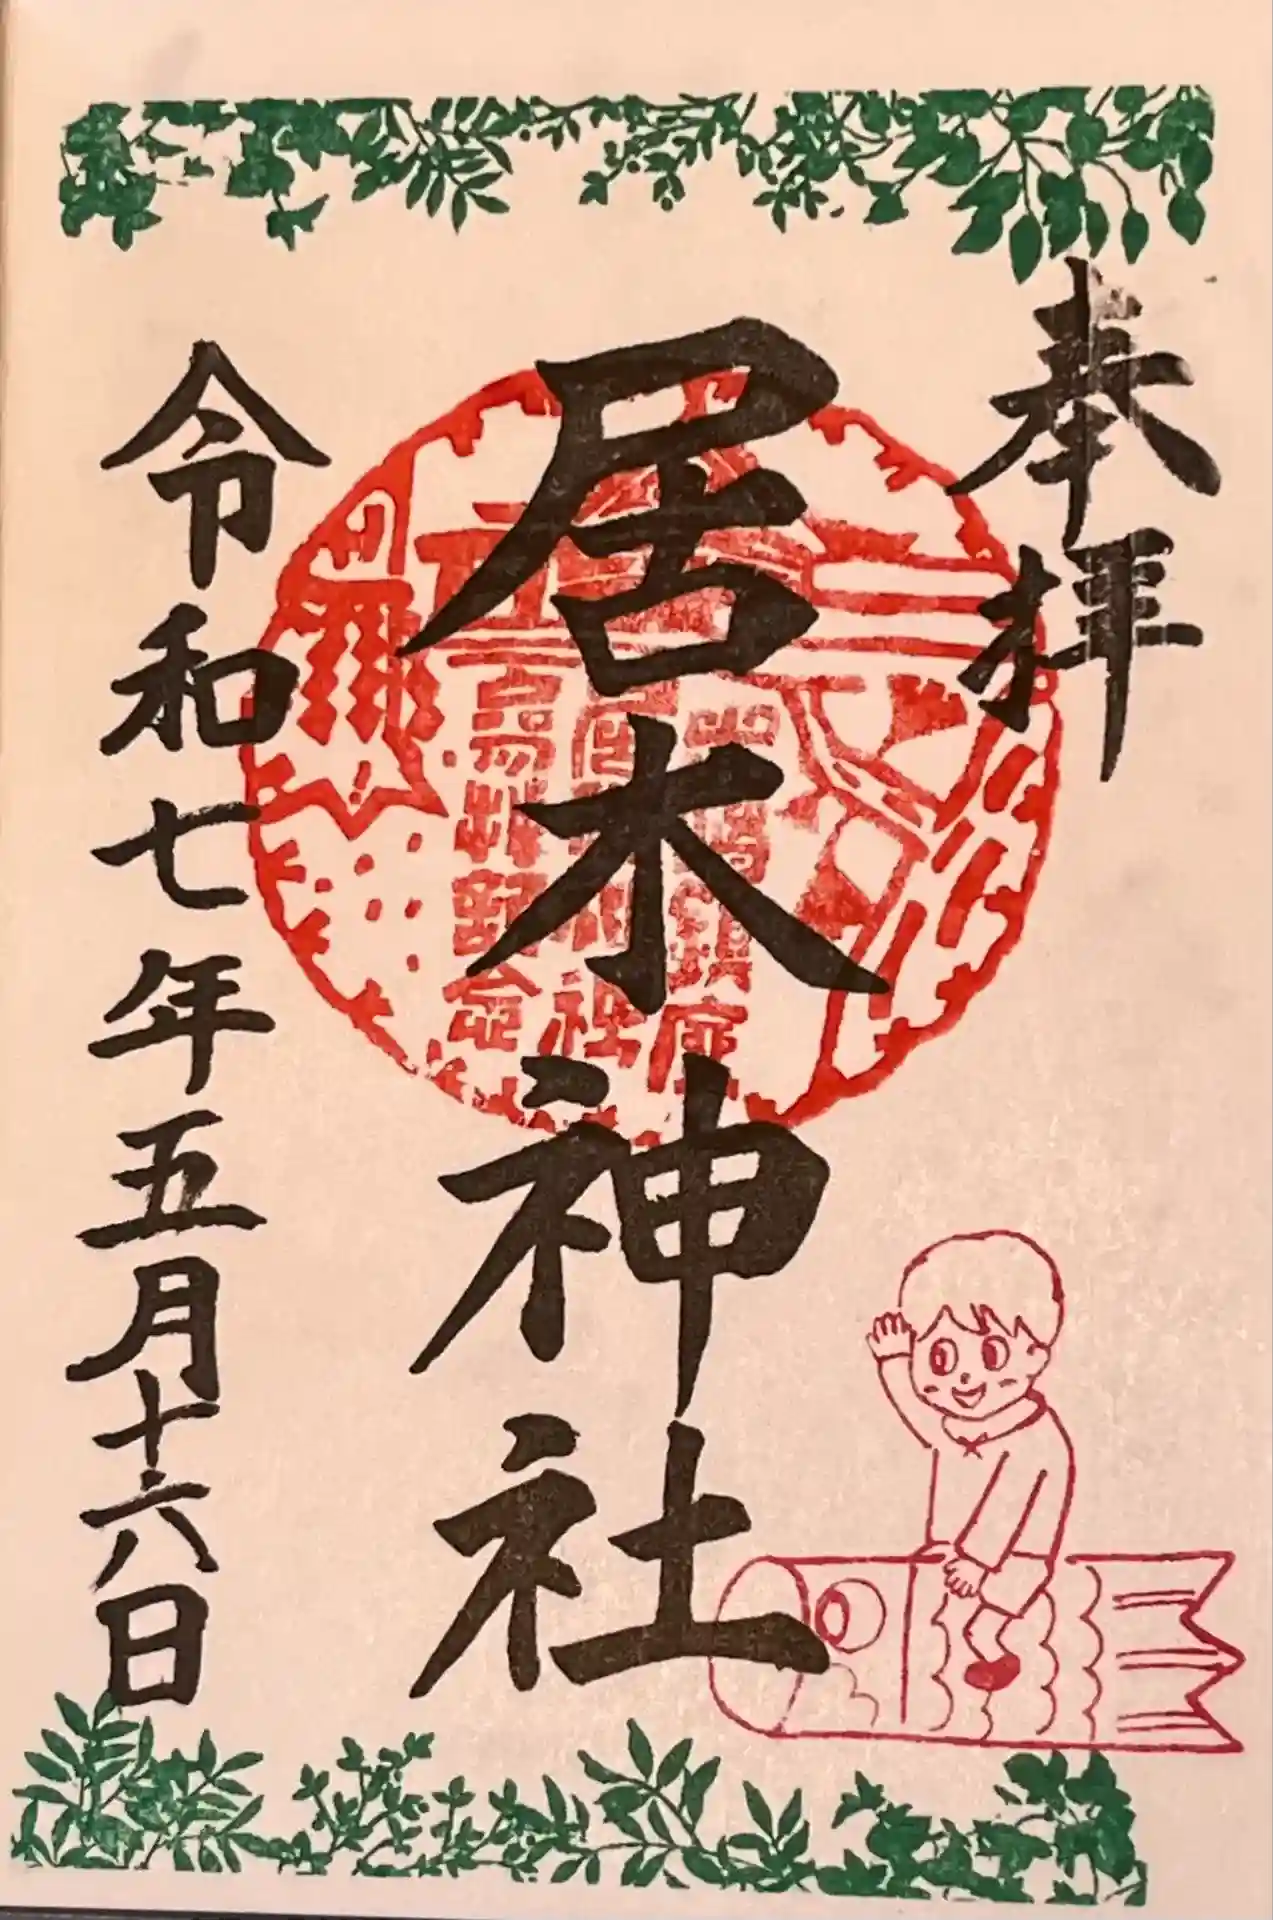 奉拝
居木神社
令和七年五月十六日